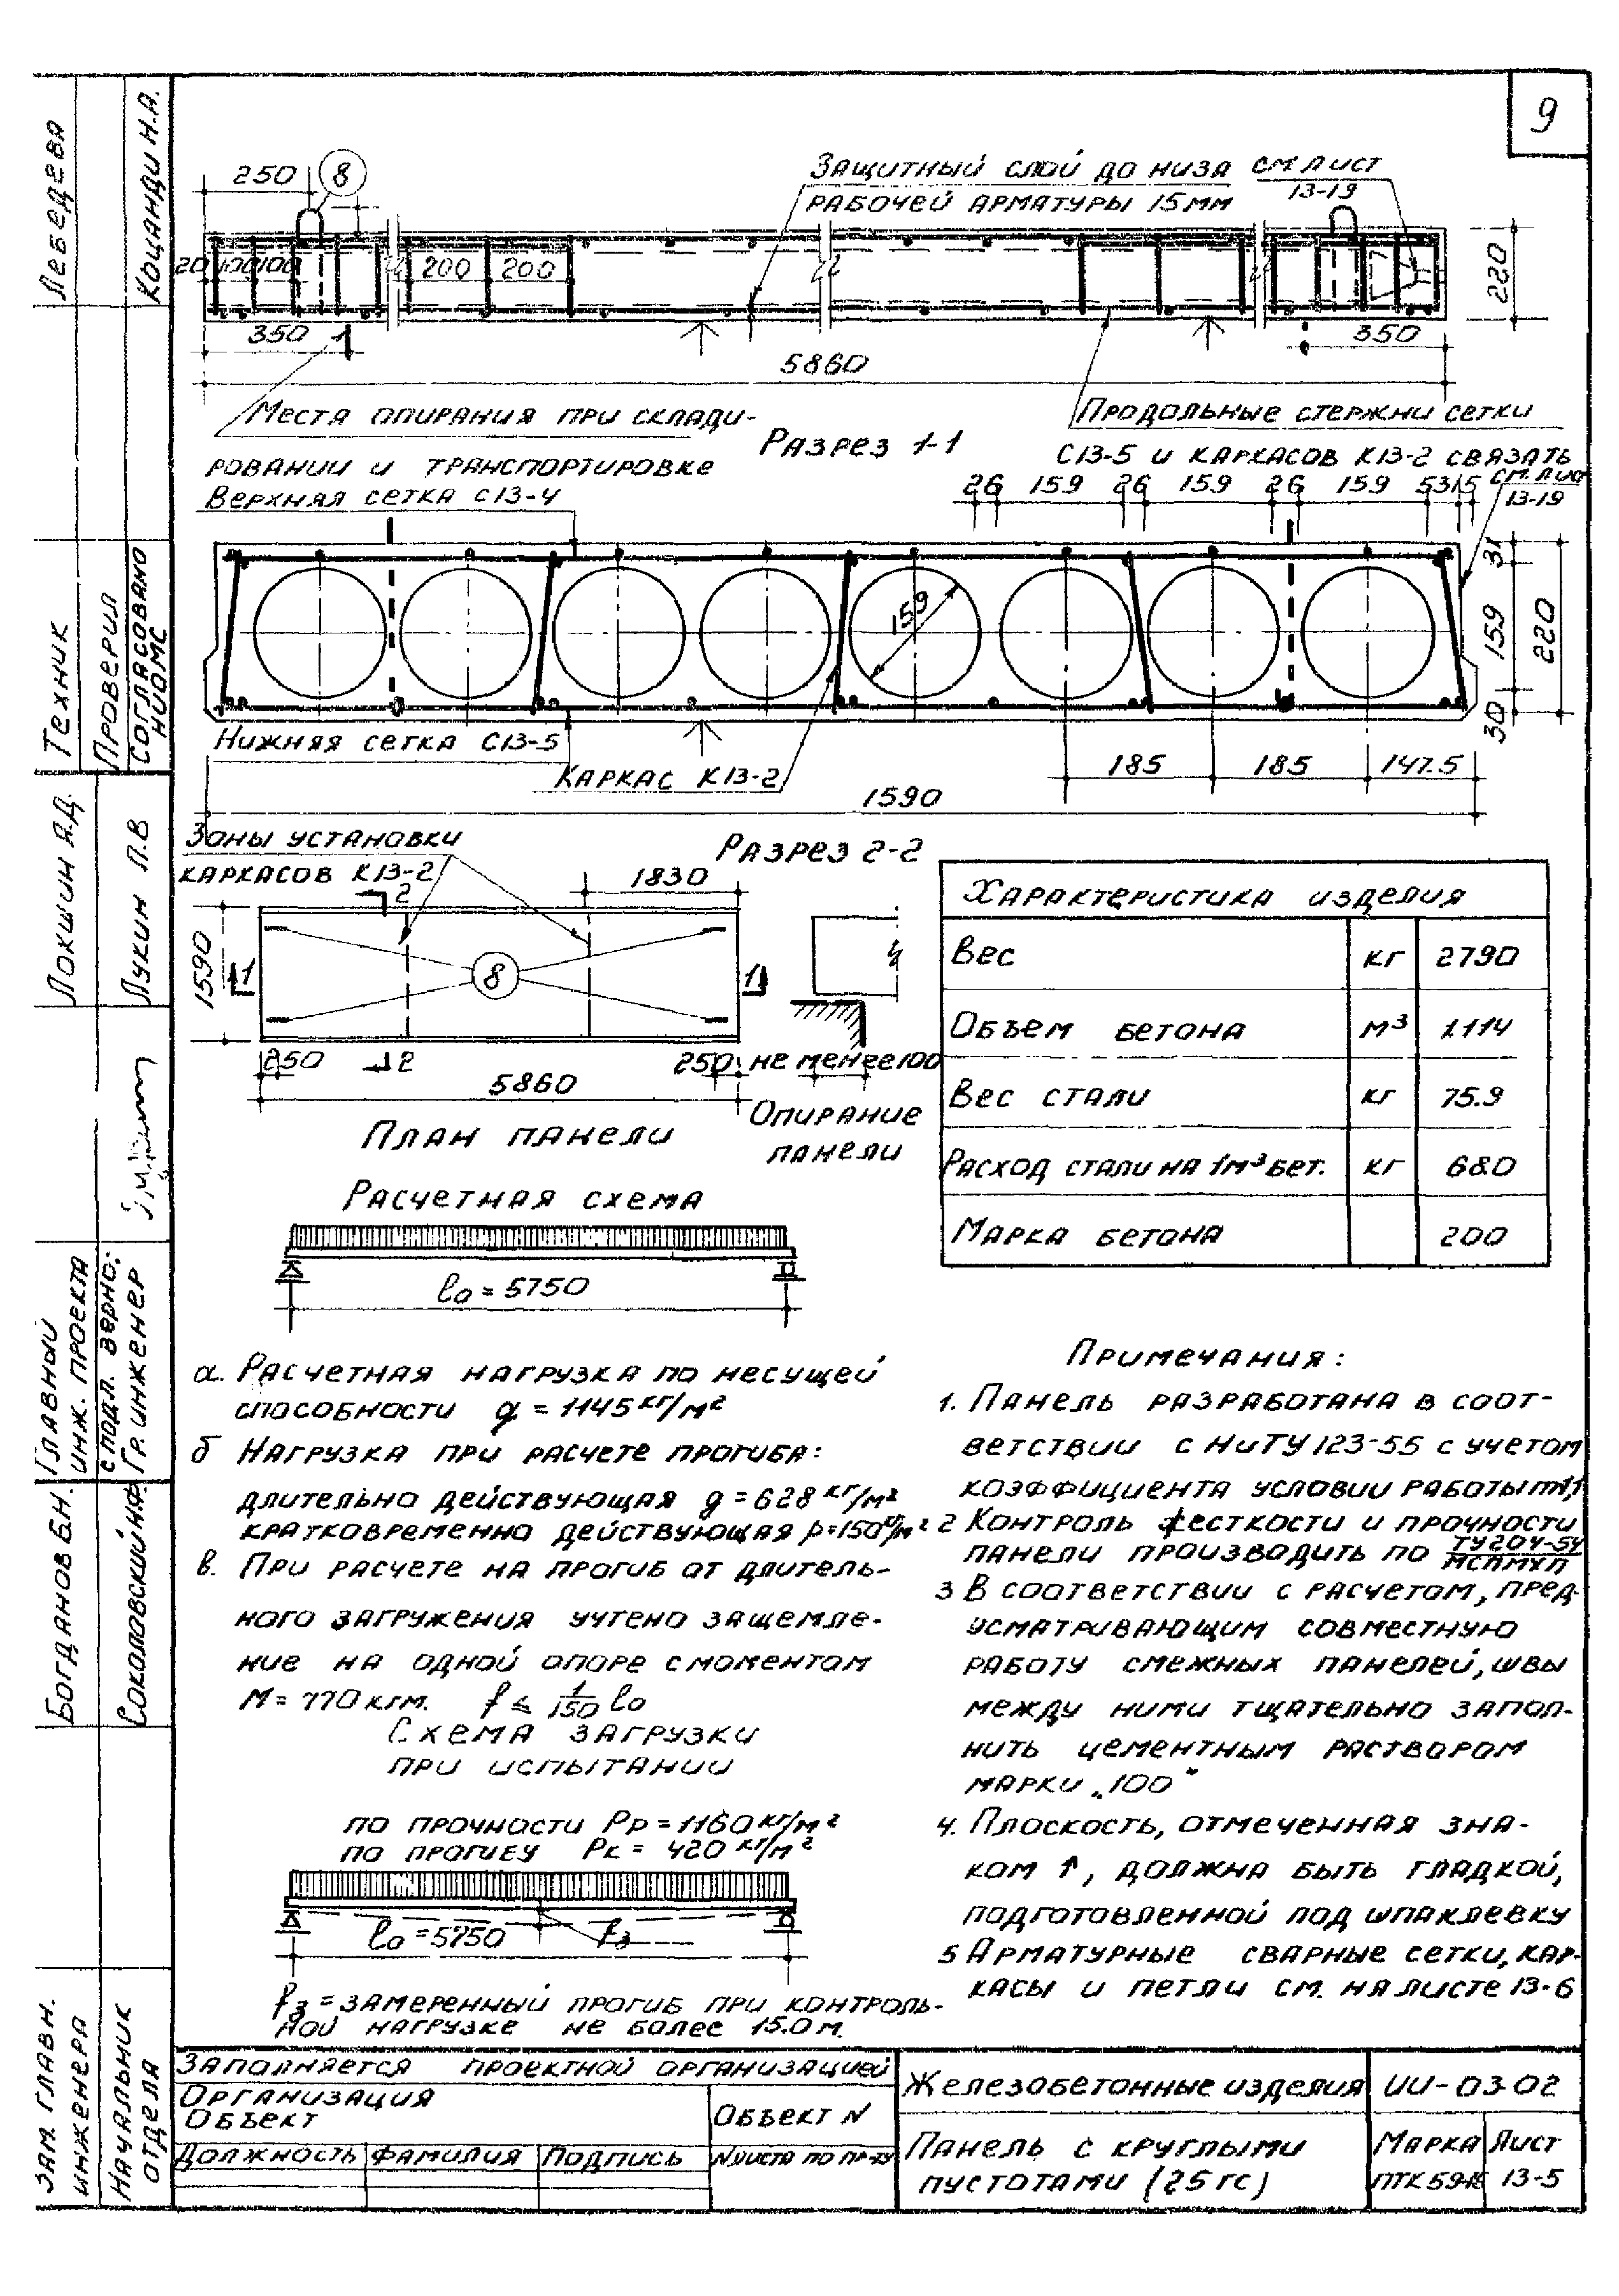 9
250 8
Защитный слой до низа
рабочей арматуры 15 мм
см лист
13-19
20 100 100 200 200
220
350 1
350
5860
Места опирания при склади-
ровании и транспортировке
Разрез 1-1
Продольные стержни сетки
С13-5 и каркасов К13-2 связать
Верхняя сетка С13-4
26 159 26 159 26 159 53 15
13-19
159
31
159
30
220
Нижняя сетка С13-5
Каркас К13-2
185 185 147.5
1590
Зоны установки
каркасов К13-2
2
1830
Разрез 2-2
1590
1 8 1
250 2
250 не менее 100
5860
Опирание
панели
План панели
Характеристика изделия
Вес кг 2790
Объем бетона м³ 1.114
Вес стали кг 75.9
Расход стали на 1м³ бет. кг 68.0
Марка бетона 200
Расчетная схема
l₀ = 5750
а. Расчетная нагрузка по несущей
способности q = 1145 кг/м²
б Нагрузка при расчете прогиба:
длительно действующая g = 628 кг/м²
кратковременно действующая p = 150 кг/м²
в. При расчете на прогиб от длитель-
ного загружения учтено защемле-
ние на одной опоре с моментом
М = 770 кгм. f ≤ 1/150 l₀
Схема загрузки
при испытании
по прочности Pр = 1160 кг/м²
по прогибу Pк = 420 кг/м²
l₀ = 5750 f₃
f₃ = замеренный прогиб при контроль-
ной нагрузке не более 15.0 м.
Примечания:
1. Панель разработана в соот-
ветствии с НиТУ 123-55 с учетом
коэффициента условии работы m1,1
2 Контроль жесткости и прочности
панели производить по ТУ204-54
МСПМХП
3 В соответствии с расчетом, пред-
усматривающим совместную
работу смежных панелей, швы
между ними тщательно запол-
нить цементным раствором
марки „100"
4. Плоскость, отмеченная зна-
ком ↑, должна быть гладкой,
подготовленной под шпаклевку
5 Арматурные сварные сетки, кар-
касы и петли см. на листе 13-6
Заполняется проектной организацией
Организация
Объект
Объект N
Должность Фамилия Подпись N листа по пр-ту
Железобетонные изделия ИИ-03-02
Панель с круглыми
пустотами (25 гс)
Марка Лист
ПТК 59-16 13-5
Лебедева
Коцанди Н.А.
Техник
Проверил
Согласовано
НИОМС
Локшин А.Д.
Лукин П.В
Главный
инж. проекта
с подл. верно:
Гр. инженер
Богданов Б.Н.
Соколовский Н.Ф.
Зам. главн.
инженера
Начальник
отдела